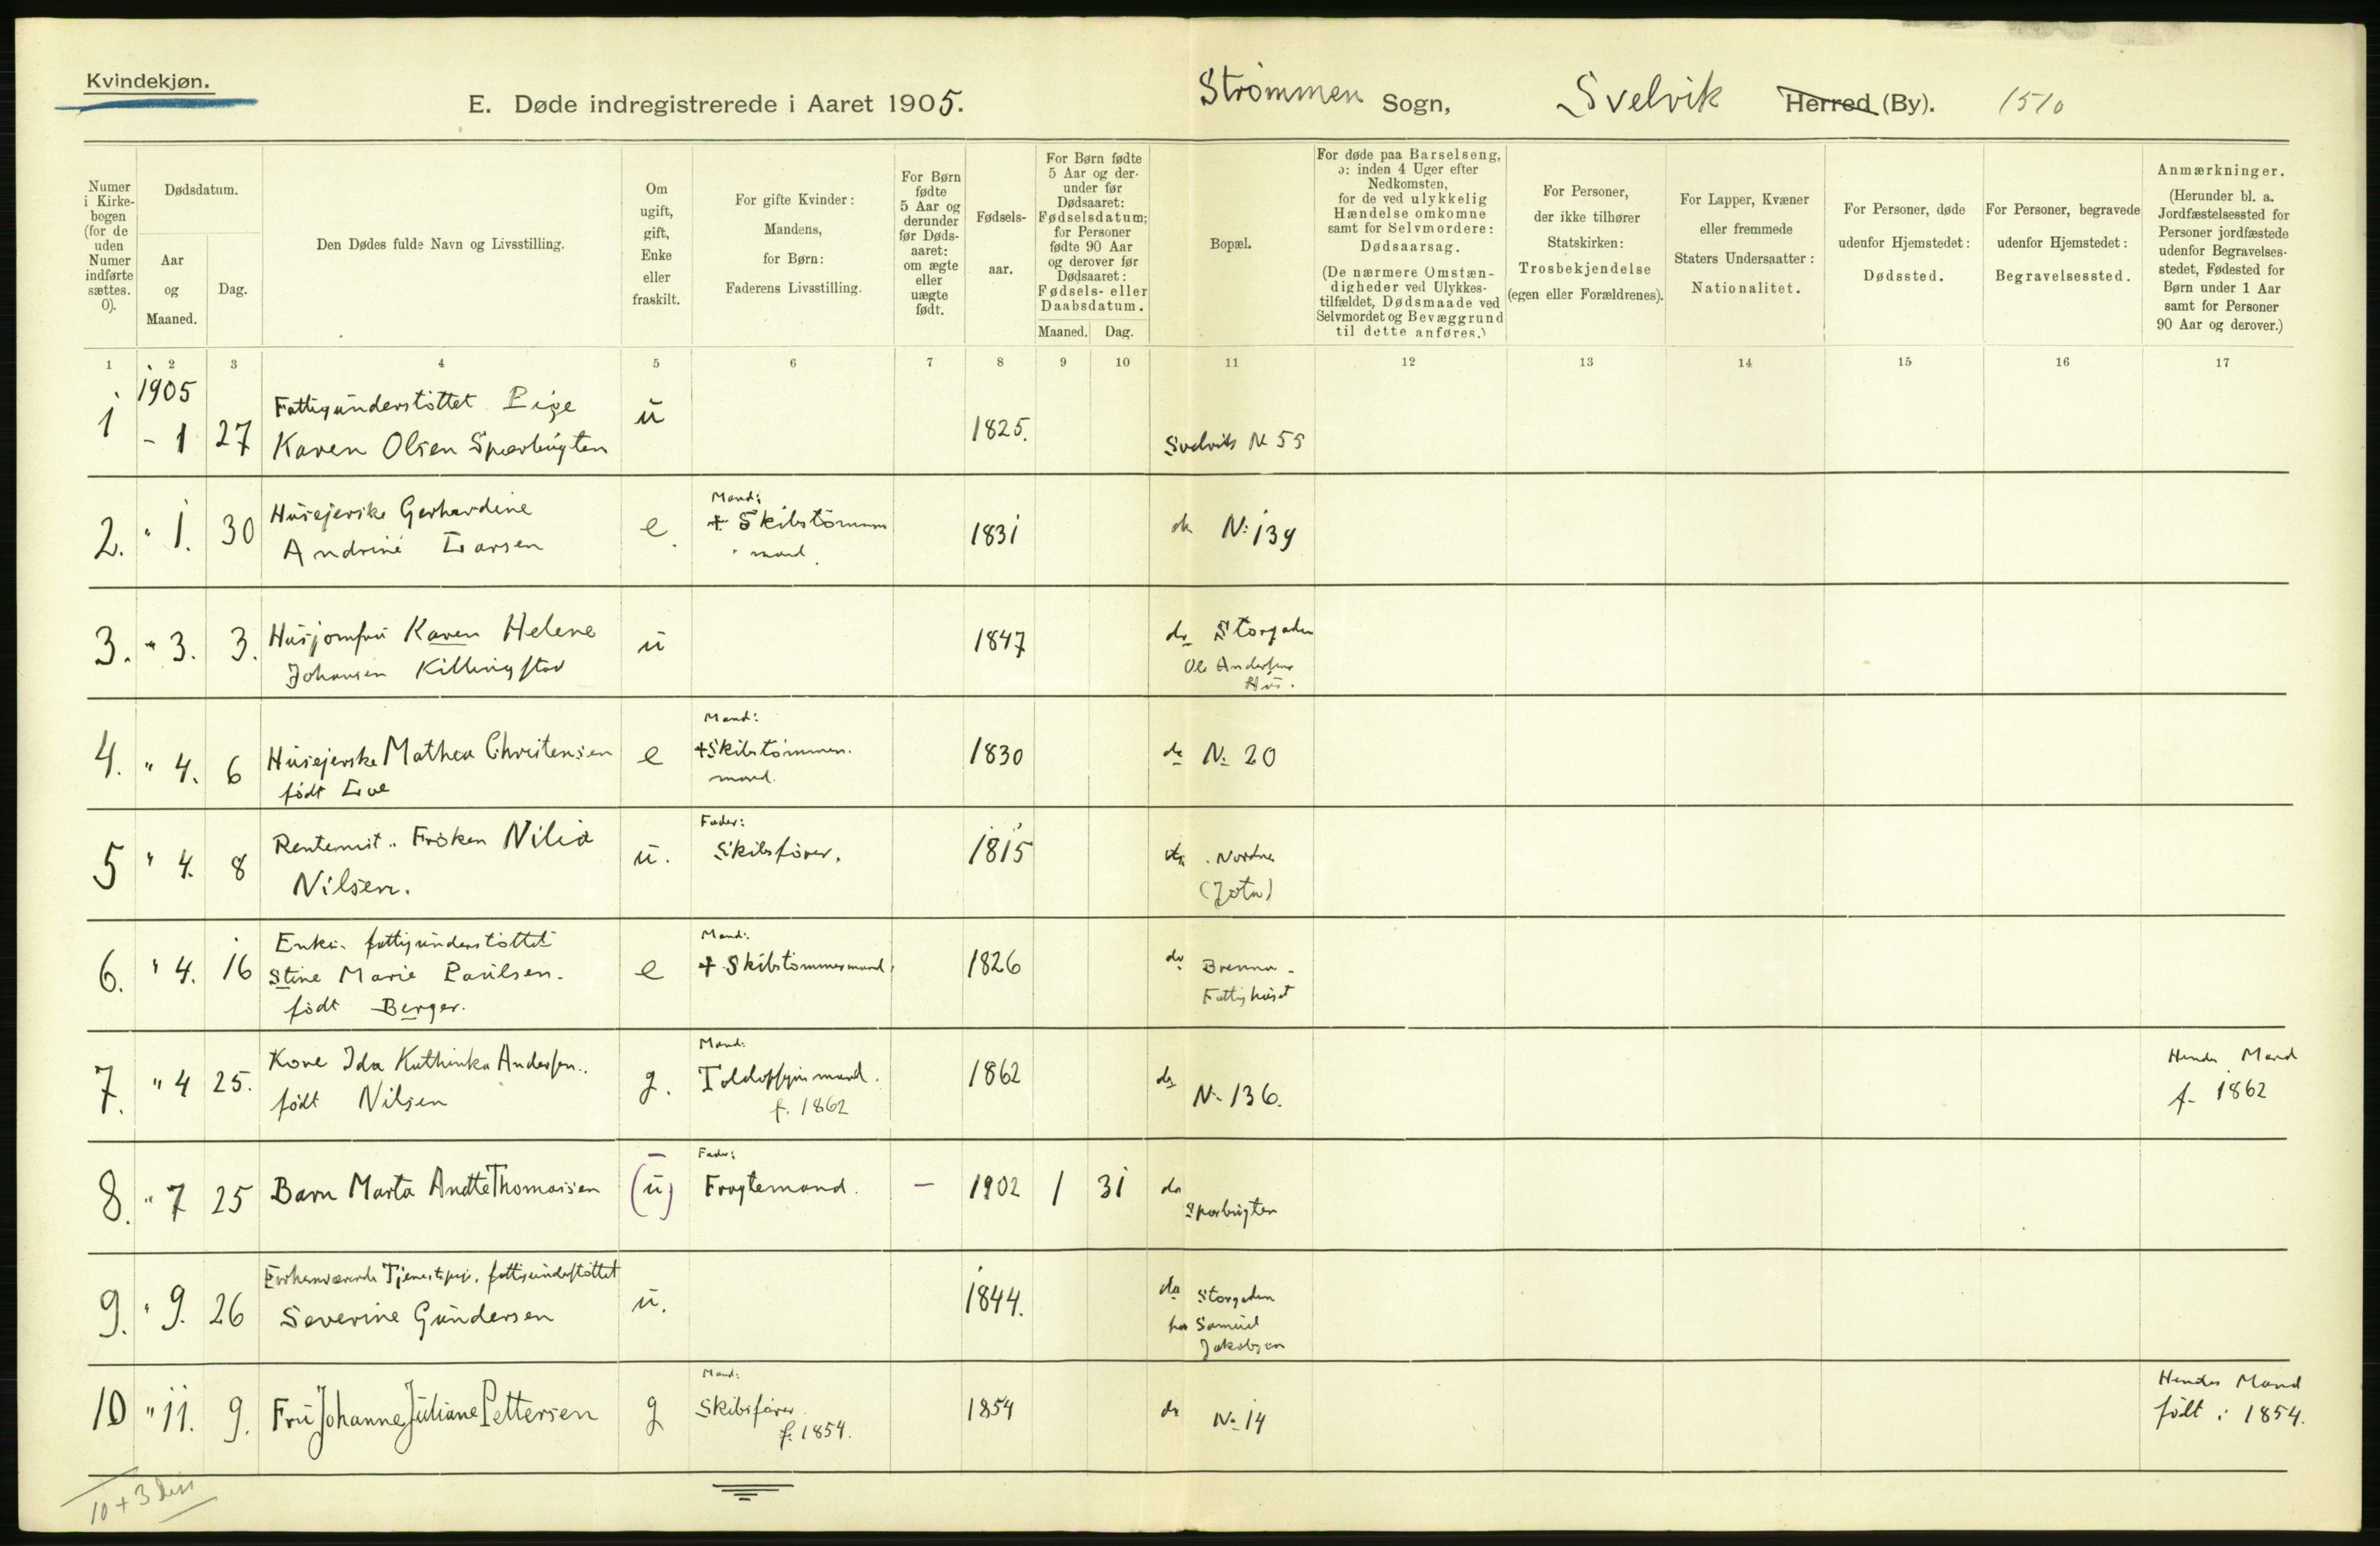 Kvindekjøn.
E. Døde indregistrerede i Aaret 1905. Strømmen Sogn, Svelvik Herred (By). 1510
Numer
i Kirke-
bogen
(for de
uden
Numer
indførte
sættes.
0).
Dødsdatum.
Aar
og
Maaned.
Dag.
Den Dødes fulde Navn og Livsstilling.
Om
ugift,
gift,
Enke
eller
fraskilt.
For gifte Kvinder:
Mandens,
for Børn:
Faderens Livsstilling.
For Børn
fødte
5 Aar og
derunder
før Døds-
aaret:
om ægte
eller
uægte
født.
Fødsels-
aar.
For Børn fødte
5 Aar og der-
under før
Dødsaaret:
Fødselsdatum;
for Personer
fødte 90 Aar
og derover før
Dødsaaret:
Fødsels- eller
Daabsdatum.
Maaned. Dag.
Bopæl.
For døde paa Barselseng,
ɔ: inden 4 Uger efter
Nedkomsten,
for de ved ulykkelig
Hændelse omkomne
samt for Selvmordere:
Dødsaarsag.
(De nærmere Omstæn-
digheder ved Ulykkes-
tilfældet, Dødsmaade ved
Selvmordet og Bevæggrund
til dette anføres.)
For Personer,
der ikke tilhører
Statskirken:
Trosbekjendelse
(egen eller Forældrenes).
For Lapper, Kvæner
eller fremmede
Staters Undersaatter:
Nationalitet.
For Personer, døde
udenfor Hjemstedet:
Dødssted.
For Personer, begravede
udenfor Hjemstedet:
Begravelsessted.
Anmærkninger.
(Herunder bl. a.
Jordfæstelsessted for
Personer jordfæstede
udenfor Begravelses-
stedet, Fødested for
Børn under 1 Aar
samt for Personer
90 Aar og derover.)
1 2 3 4 5 6 7 8 9 10 11 12 13 14 15 16 17
1905
Fattigunderstøttet Pige
1 - 1 27 Karen Olsen Sparbugten u 1825. Svelvik No 55
Husejerske Gerhardine Mand:
2. " 1. 30 Andrine Larsen e. + Skibstømmer
mand. 1831 do No 139
3. " 3. 3. Husjomfru Karen Helene u 1847 do Storgaden
Johansen Killingstad Ole Andersens
Hus.
Mand:
4. " 4. 6 Husejerske Mathea Christensen e + Skibstømmer. 1830 do No 20
født mand.
Fader:
5 " 4. 8 Rentenist.. Frøken Nilia u. Skibsfører. 1815 do . Nordre
Nilsen. (Jota)
Enke. fattigunderstøttet Mand:
6. " 4. 16 Stine Marie Paulsen. e + Skibstømmermand, 1826 do Brenna -
født Berger. Fattighuset
Mand:
7. " 4 25. Kone Ida Kathinka Andersen.. g. Toldopsynsmand. 1862 do No 136. Hendes Mand
født Nilsen f. 1862 f. 1862
Fader:
8. " 7 25 Barn Marta Anette Thomassen (u) Fragtemand. — 1902 1 31 do
Sparbugten
Forhenværende Tjenestepige, fattigunderstøttet
9. " 9. 26 Severine Gundersen u. 1844. do Storgaden
hos Samuel
Jakobsen
Mand:
10 " 11. 9. Fru Johanne Juliane Pettersen g Skibsfører 1854 do No 14 Hendes Mand
f. 1854. født i 1854.
10 + 3